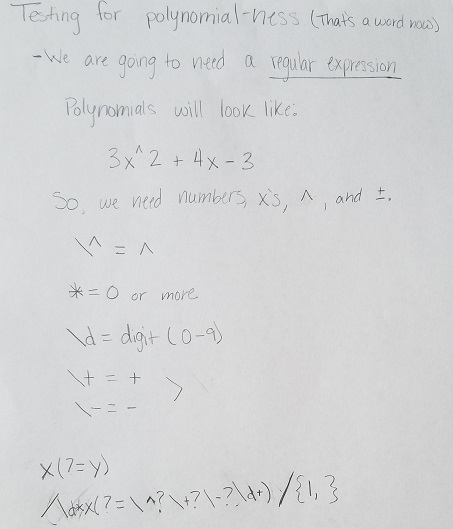 Testing for polynomial-ness (That's a word now)
-We are going to need a regular expression
Polynomials will look like:
3x^2 + 4x - 3
So, we need numbers, x's, ^, and ±.
\^ = ^
* = 0 or more
\d = digit (0-9)
\+ = + >
\- = -
x(?=y)
/\d*x(?=\^?\+?\-?\d+)/{1,}